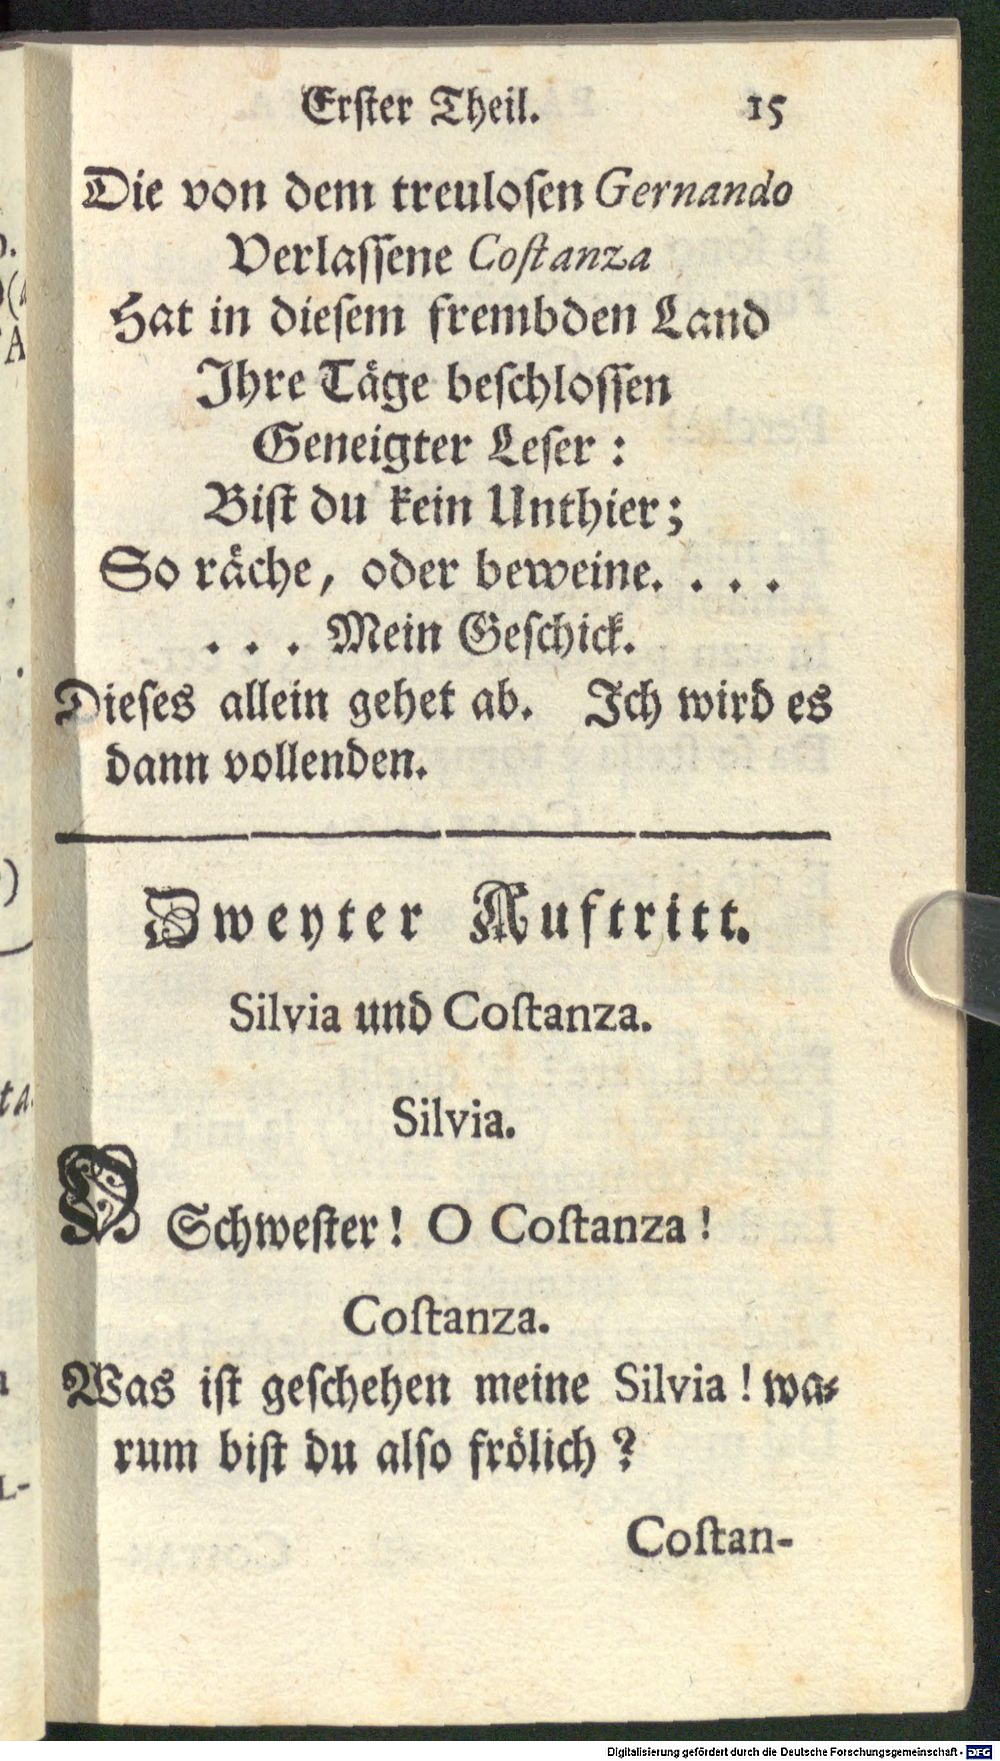 Erſter Theil. 15
Die von dem treuloſen Gernando
Verlaſſene Coſtanza
Hat in dieſem frembden Land
Ihre Täge beſchloſſen
Geneigter Leſer :
Biſt du kein Unthier;
So räche, oder beweine. . . .
. . . Mein Geſchick.
Dieſes allein gehet ab. Ich wird es
dann vollenden.
Zweyter Auftritt.
Silvia und Coſtanza.
Silvia.
O Schweſter! O Coſtanza!
Coſtanza.
Was iſt geſchehen meine Silvia! wa-
rum biſt du alſo frölich?
Coſtan-
Digitalisierung gefördert durch die Deutsche Forschungsgemeinschaft - DFG